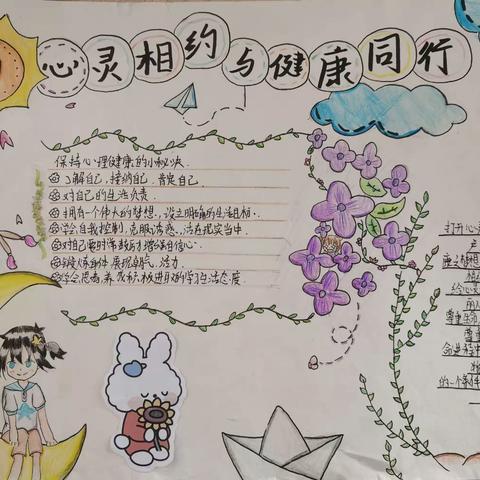 心灵相约与健康同行
保持心理健康的小秘诀.
了解自己,接纳自己,肯定自己.
对自己的生活负责.
拥有一个伟大的梦想,设立明确的生活目标.
学会自我控制,克服诱惑,活在现实当中.
对自己要时常鼓励,增强自信心.
锻炼身体,展现朝气、活力.
学会思考,养成积极进取的学习生活态度.
打开心
给心灵
尊重生
的一个条件